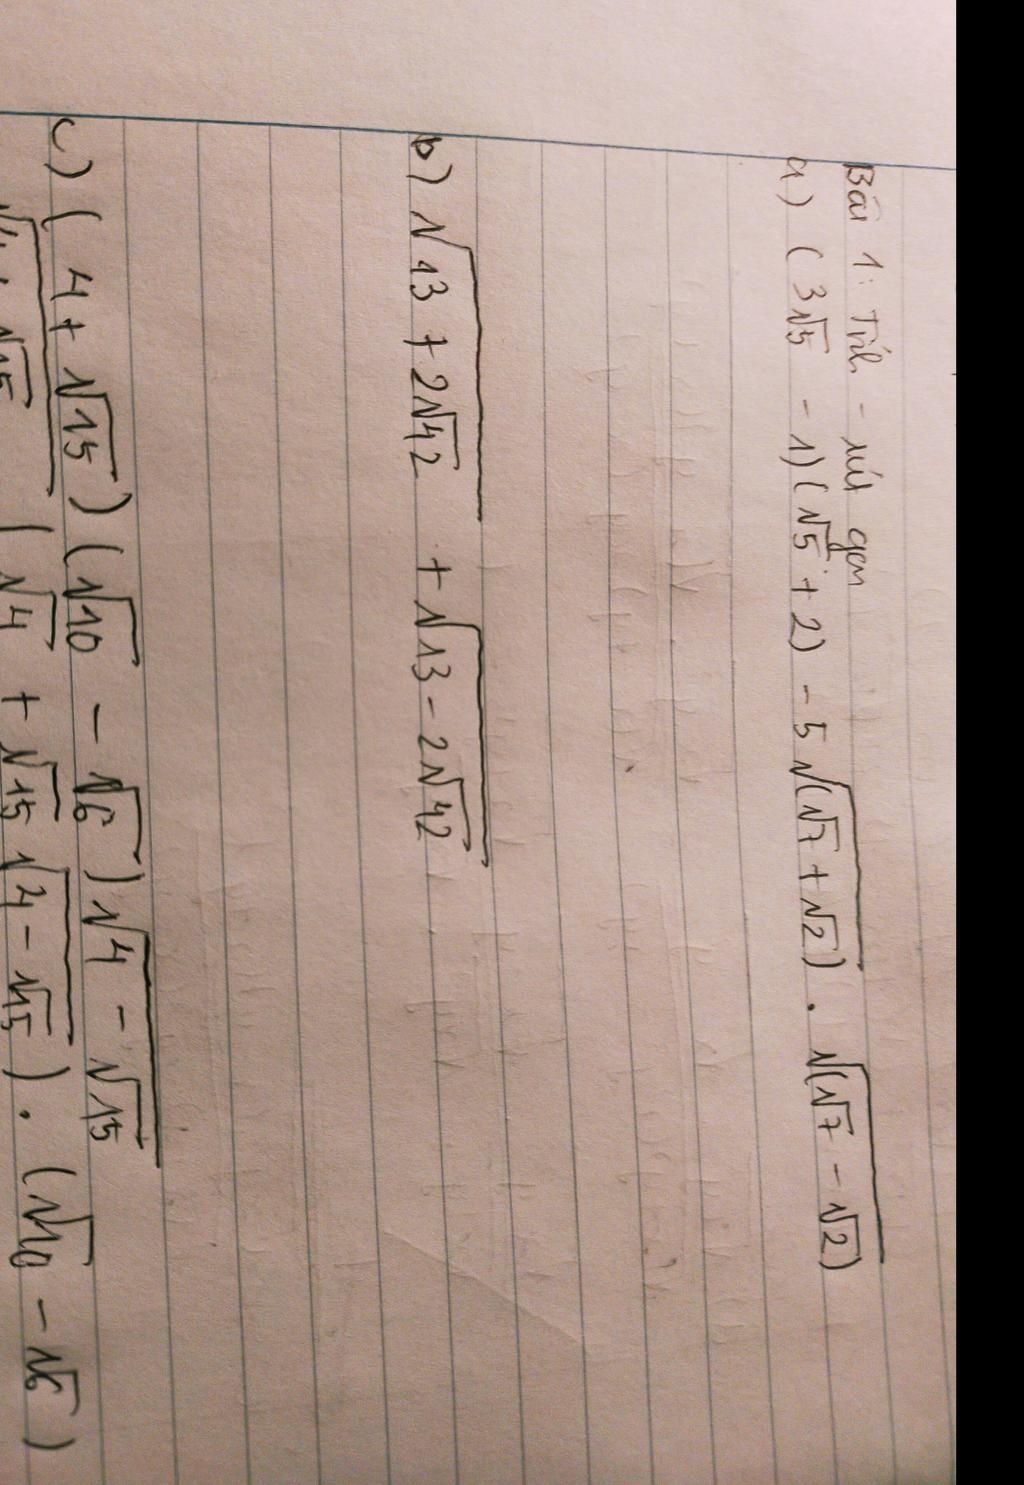 Bài 1: Tính - rút gọn
a) (3√5 - 1)(√5 + 2) - 5√(√7 + √2) . √(√7 - √2)
b) √(13 + 2√42) + √(13 - 2√42)
c) (4 + √15)(√10 - √6)√(4 - √15)
√15 (√4 + √15 √(4 - √15)) . (√10 - √6)